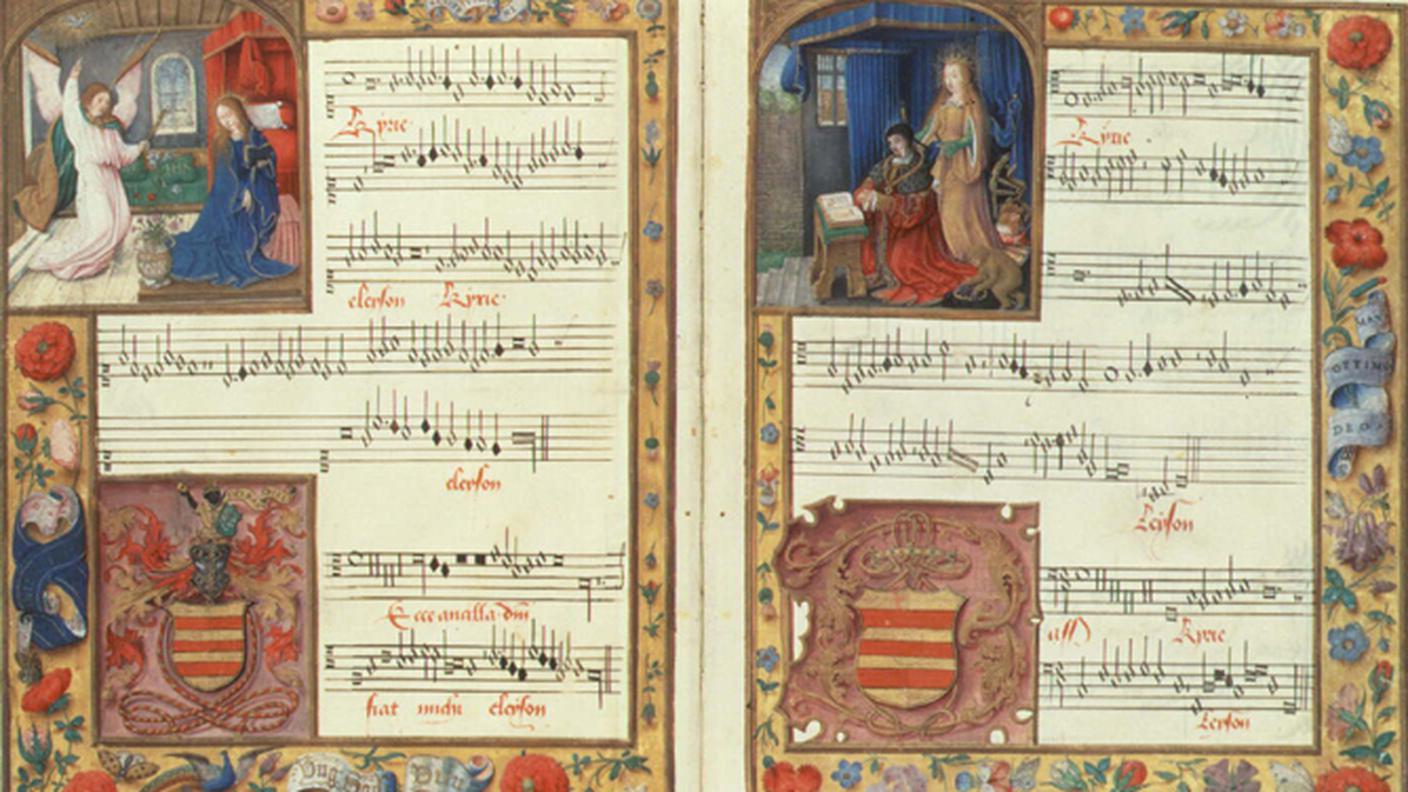 Kyrie
eleyson Kyrie
eleyson
Ecce ancilla dñi
fiat michi eleyson
Kyrie
Leyson
Kyrie
Leyson
OTTIMO
DEO